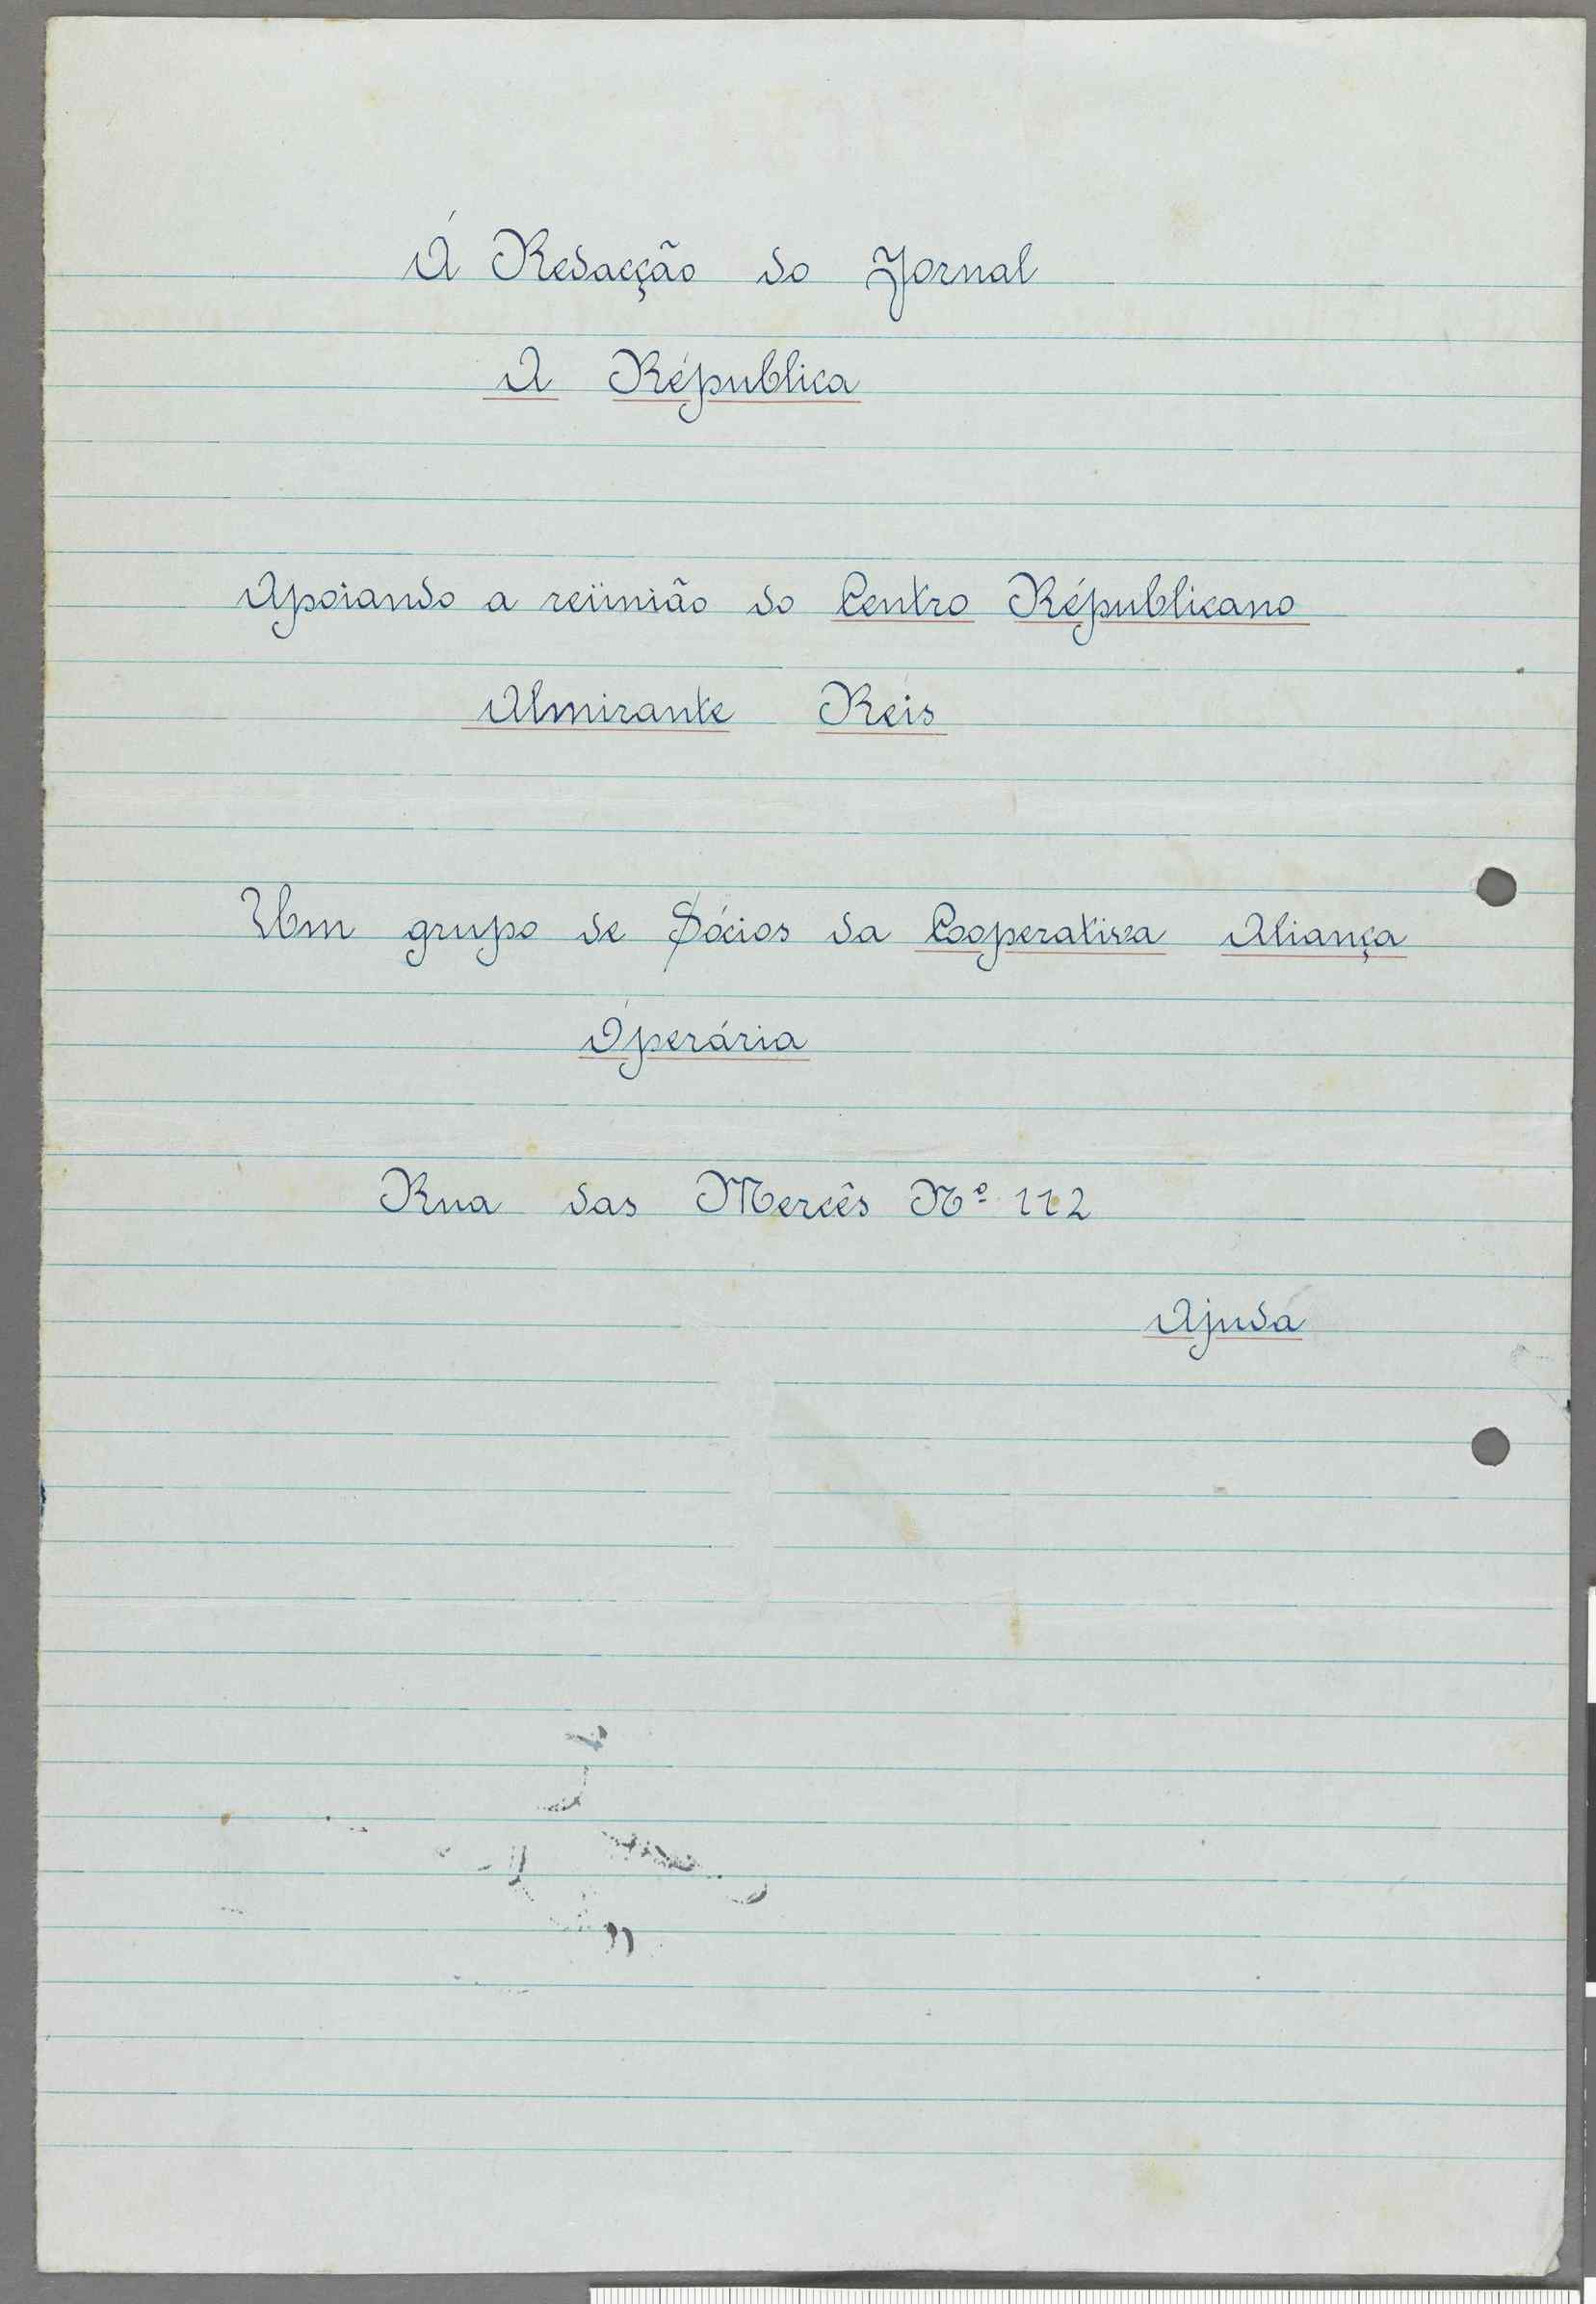 Á Redacção do Jornal
A Républica
Apoiando a reünião do Centro Républicano
Almirante Reis
Um grupo de Sócios da Cooperativa Aliança
Óperária
Rua das Mercês Nº 112
Ajuda